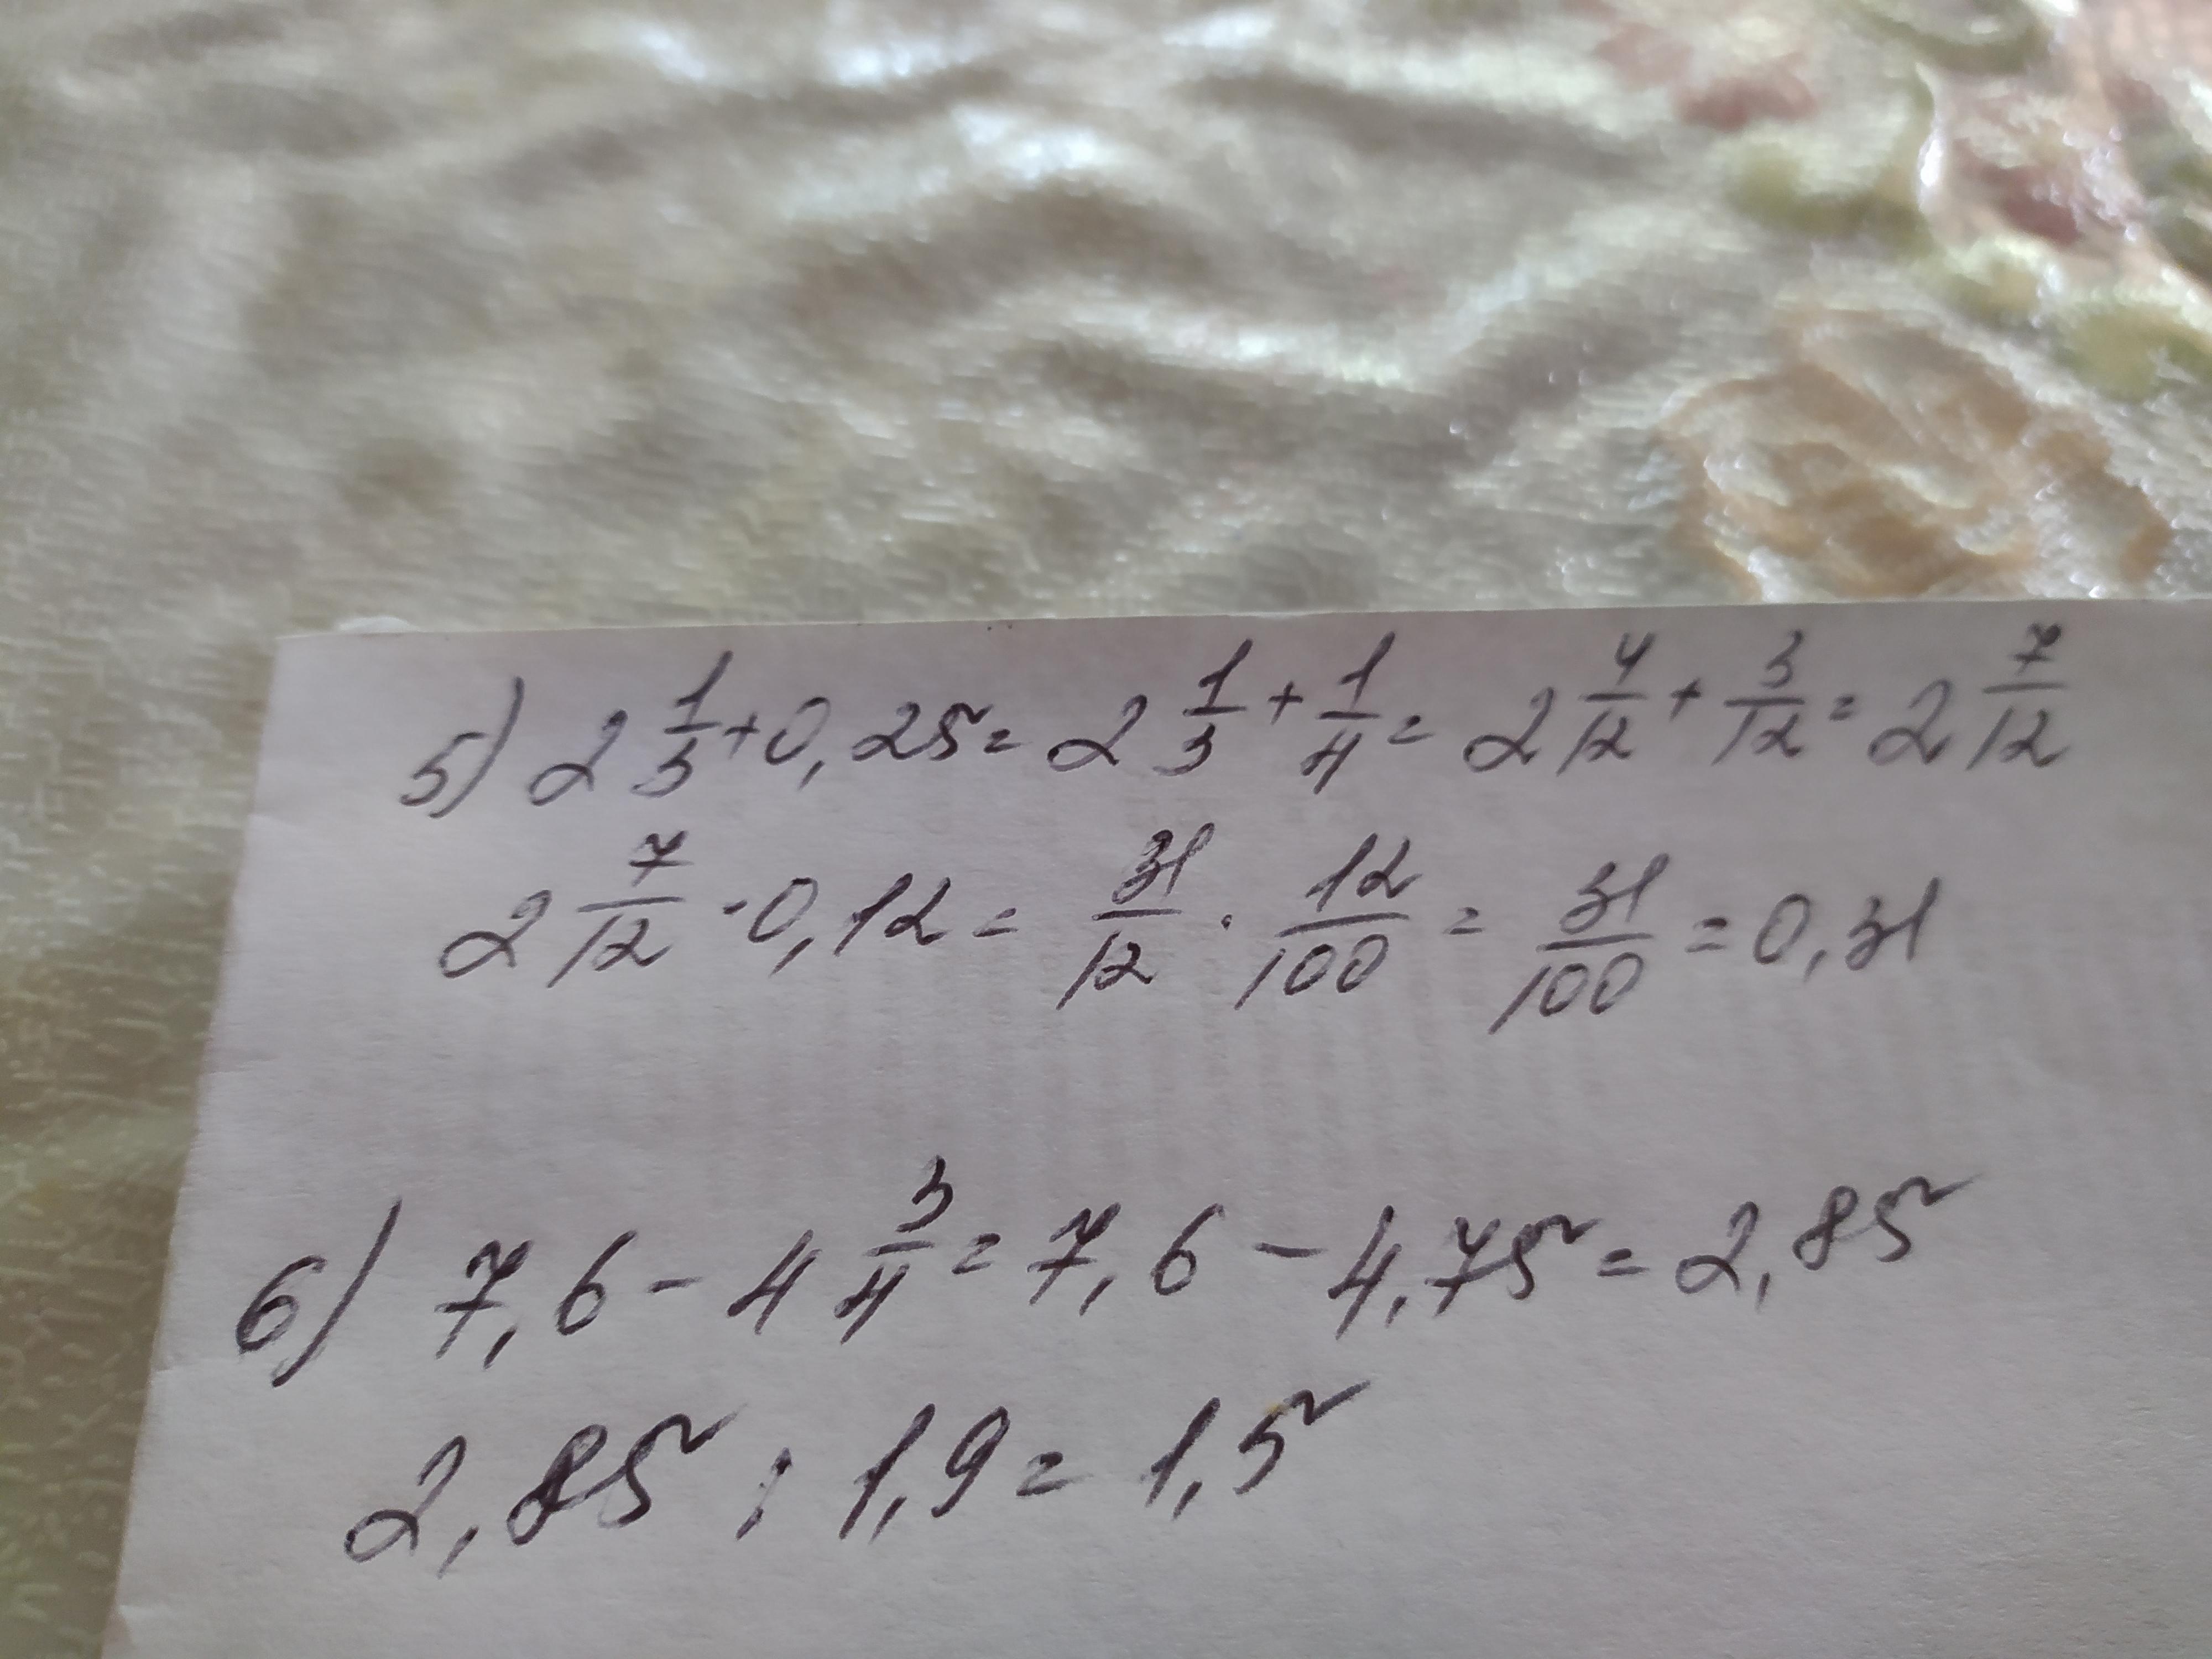 5) 2 1/3 + 0,25 = 2 1/3 + 1/4 = 2 4/12 + 3/12 = 2 7/12
2 7/12 · 0,12 = 31/12 · 12/100 = 31/100 = 0,31
6) 7,6 - 4 3/4 = 7,6 - 4,75 = 2,85
2,85 : 1,9 = 1,5